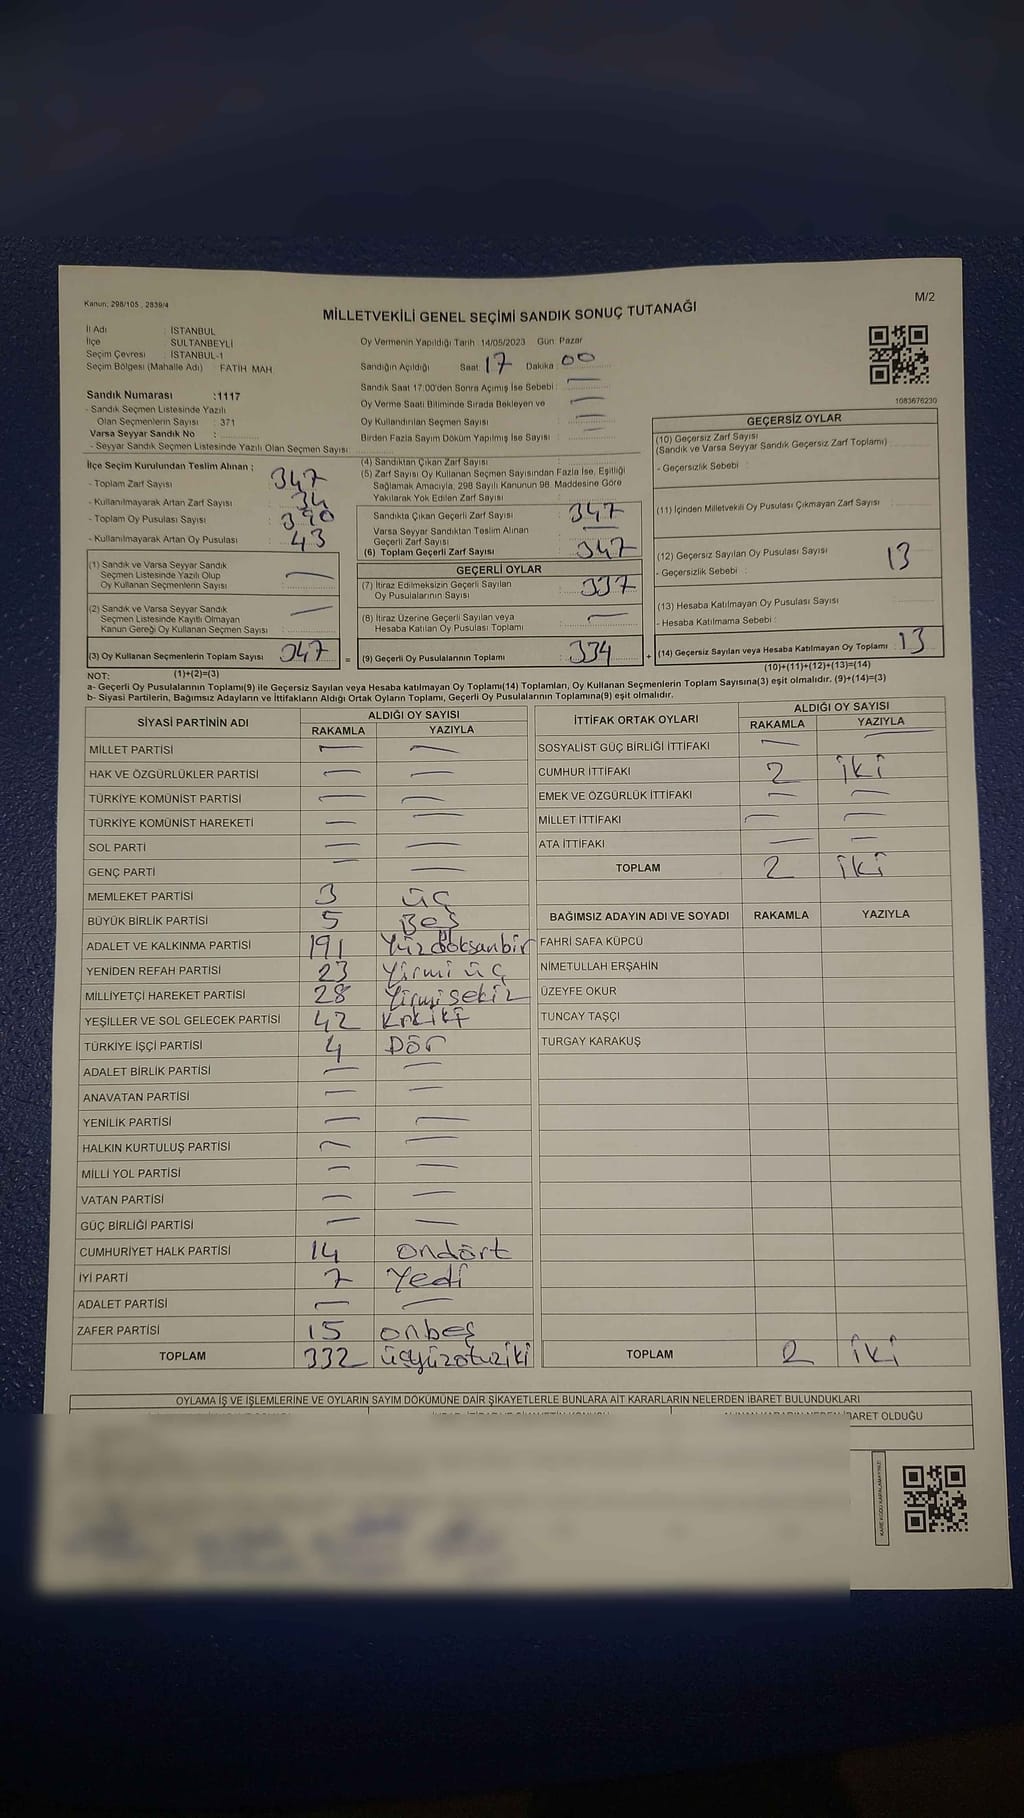 Kanun; 298/105 , 2839/4
M/2
MİLLETVEKİLİ GENEL SEÇİMİ SANDIK SONUÇ TUTANAĞI
İl Adı : İSTANBUL
İlçe SULTANBEYLİ
Seçim Çevresi : İSTANBUL-1
Seçim Bölgesi (Mahalle Adı) FATİH MAH
Oy Vermenin Yapıldığı Tarih :14/05/2023 Gün: Pazar
Sandığın Açıldığı Saat: 17 Dakika : 00
Sandık Saat 17:00'den Sonra Açımış İse Sebebi : —
Oy Verme Saati Bitiminde Sırada Bekleyen ve —
Oy Kullandırılan Seçmen Sayısı —
Birden Fazla Sayım Döküm Yapılmış İse Sayısı :
1083676230
Sandık Numarası :1117
- Sandık Seçmen Listesinde Yazılı
Olan Seçmenlerin Sayısı : 371
Varsa Seyyar Sandık No :
- Seyyar Sandık Seçmen Listesinde Yazılı Olan Seçmen Sayısı:
İlçe Seçim Kurulundan Teslim Alınan ;
- Toplam Zarf Sayısı
- Kullanılmayarak Artan Zarf Sayısı : 34
- Toplam Oy Pusulası Sayısı : 390
- Kullanılmayarak Artan Oy Pusulası : 43
(1) Sandık ve Varsa Seyyar Sandık
Seçmen Listesinde Yazılı Olup
Oy Kullanan Seçmenlerin Sayısı : —
(2) Sandık ve Varsa Seyyar Sandık
Seçmen Listesinde Kayıtlı Olmayan
Kanun Gereği Oy Kullanan Seçmen Sayısı : —
(3) Oy Kullanan Seçmenlerin Toplam Sayısı : 347 =
(4) Sandıktan Çıkan Zarf Sayısı :
(5) Zarf Sayısı Oy Kullanan Seçmen Sayısından Fazla İse, Eşitliği
Sağlamak Amacıyla, 298 Sayılı Kanunun 98. Maddesine Göre
Yakılarak Yok Edilen Zarf Sayısı :
Sandıkta Çıkan Geçerli Zarf Sayısı : 347
Varsa Seyyar Sandıktan Teslim Alınan
Geçerli Zarf Sayısı : —
(6) Toplam Geçerli Zarf Sayısı : 347
GEÇERLİ OYLAR
(7) İtiraz Edilmeksizin Geçerli Sayılan
Oy Pusulalarının Sayısı
(8) İtiraz Üzerine Geçerli Sayılan veya
Hesaba Katılan Oy Pusulası Toplamı : —
(9) Geçerli Oy Pusulalarının Toplamı : 334 +
GEÇERSİZ OYLAR
(10) Geçersiz Zarf Sayısı
(Sandık ve Varsa Seyyar Sandık Geçersiz Zarf Toplamı)
- Geçersizlik Sebebi :
(11) İçinden Milletvekili Oy Pusulası Çıkmayan Zarf Sayısı :
(12) Geçersiz Sayılan Oy Pusulası Sayısı : 13
- Geçersizlik Sebebi :
(13) Hesaba Katılmayan Oy Pusulası Sayısı :
- Hesaba Katılmama Sebebi :
(14) Geçersiz Sayılan veya Hesaba Katılmayan Oy Toplamı : 13
NOT: (1)+(2)=(3) (10)+(11)+(12)+(13)=(14)
a- Geçerli Oy Pusulalarının Toplamı(9) ile Geçersiz Sayılan veya Hesaba katılmayan Oy Toplamı(14) Toplamları, Oy Kullanan Seçmenlerin Toplam Sayısına(3) eşit olmalıdır. (9)+(14)=(3)
b- Siyasi Partilerin, Bağımsız Adayların ve İttifakların Aldığı Ortak Oyların Toplamı, Geçerli Oy Pusulalarının Toplamına(9) eşit olmalıdır.
SİYASİ PARTİNİN ADI ALDIĞI OY SAYISI
RAKAMLA YAZIYLA
MİLLET PARTİSİ — —
HAK VE ÖZGÜRLÜKLER PARTİSİ — —
TÜRKİYE KOMÜNİST PARTİSİ — —
TÜRKİYE KOMÜNİST HAREKETİ — —
SOL PARTİ — —
GENÇ PARTİ — —
MEMLEKET PARTİSİ 3 üç
BÜYÜK BİRLİK PARTİSİ 5 Beş
ADALET VE KALKINMA PARTİSİ 191
YENİDEN REFAH PARTİSİ 23 Yirmi üç
MİLLİYETÇİ HAREKET PARTİSİ 28 Yirmisekiz
YEŞİLLER VE SOL GELECEK PARTİSİ 42
TÜRKİYE İŞÇİ PARTİSİ 4 Dör
ADALET BİRLİK PARTİSİ — —
ANAVATAN PARTİSİ — —
YENİLİK PARTİSİ — —
HALKIN KURTULUŞ PARTİSİ — —
MİLLİ YOL PARTİSİ — —
VATAN PARTİSİ — —
GÜÇ BİRLİĞİ PARTİSİ — —
CUMHURİYET HALK PARTİSİ 14 ondört
İYİ PARTİ 7 Yedi
ADALET PARTİSİ — —
ZAFER PARTİSİ 15 onbeş
TOPLAM 332 üçyüzotuziki
İTTİFAK ORTAK OYLARI ALDIĞI OY SAYISI
RAKAMLA YAZIYLA
SOSYALİST GÜÇ BİRLİĞİ İTTİFAKI — —
CUMHUR İTTİFAKI 2 iki
EMEK VE ÖZGÜRLÜK İTTİFAKI — —
MİLLET İTTİFAKI — —
ATA İTTİFAKI — —
TOPLAM 2 iki
BAĞIMSIZ ADAYIN ADI VE SOYADI RAKAMLA YAZIYLA
FAHRİ SAFA KÜPCÜ
NİMETULLAH ERŞAHİN
ÜZEYFE OKUR
TUNCAY TAŞÇI
TURGAY KARAKUŞ
TOPLAM 2 iki
OYLAMA İŞ VE İŞLEMLERİNE VE OYLARIN SAYIM DÖKÜMÜNE DAİR ŞİKAYETLERLE BUNLARA AİT KARARLARIN NELERDEN İBARET BULUNDUKLARI
ALINAN KARARIN NEDEN İBARET OLDUĞU
KARE KODU KARALAMAYINIZ!